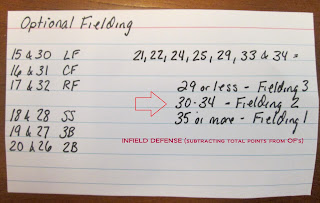 Optional Fielding
15 & 30 LF
16 & 31 CF
17 & 32 RF
18 & 28 SS
19 & 27 3B
20 & 26 2B
21, 22, 24, 25, 29, 33 & 34 =
29 or less - Fielding 3
30-34 - Fielding 2
35 or more - Fielding 1
INFIELD DEFENSE (SUBTRACTING TOTAL POINTS FROM OF'S)